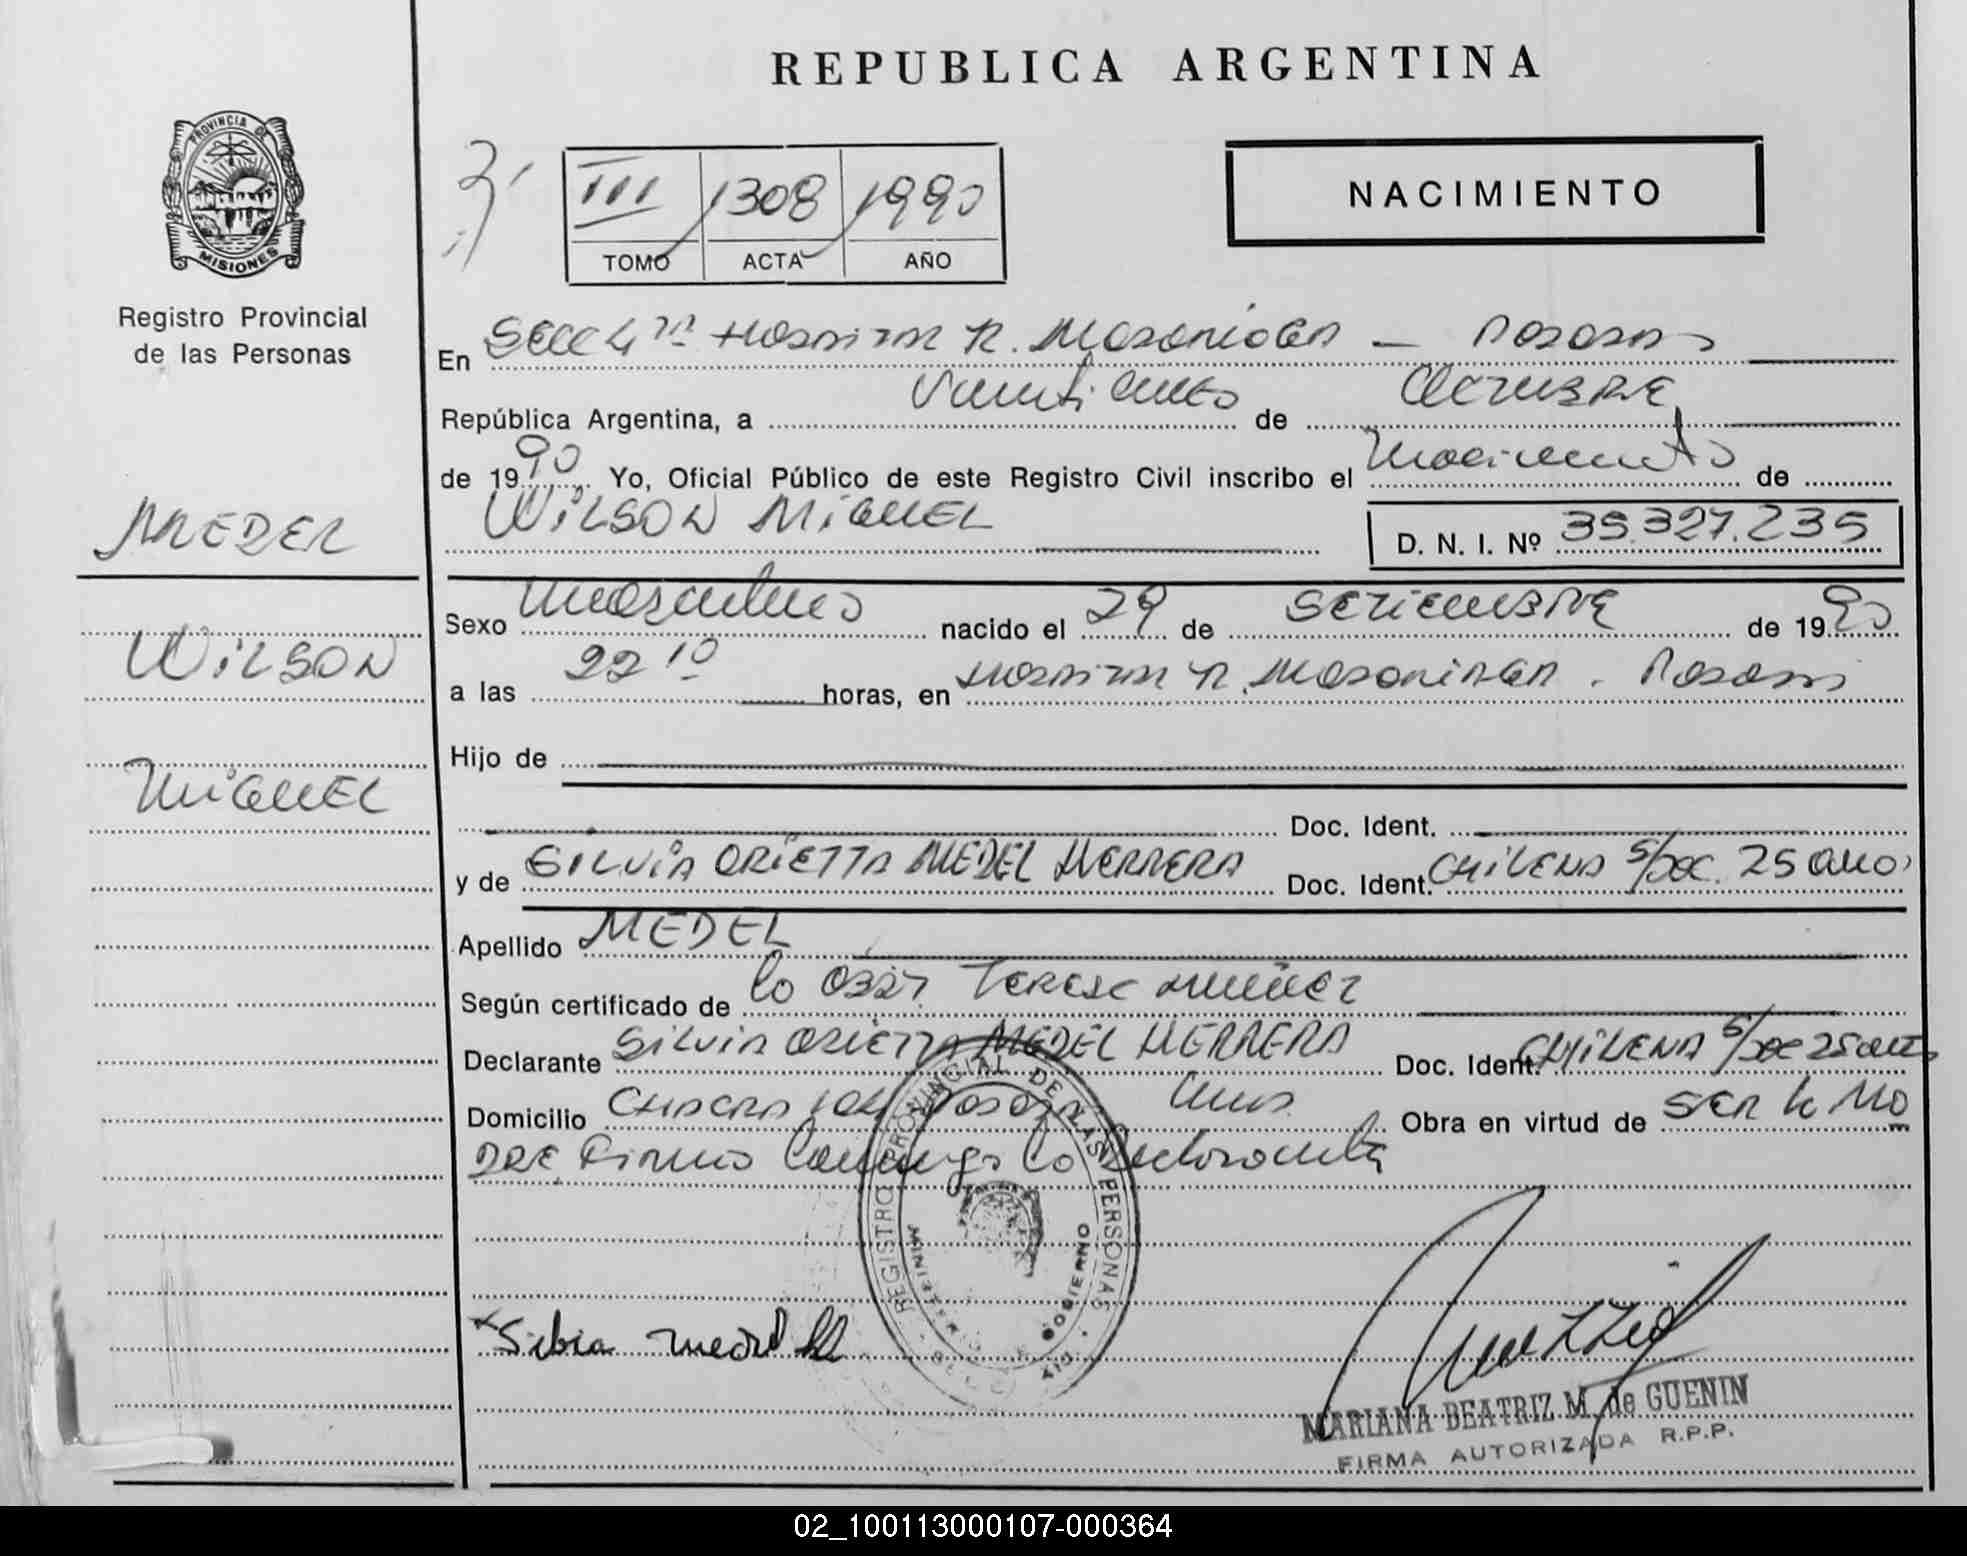 REPUBLICA ARGENTINA
PROVINCIA DE MISIONES
Registro Provincial
de las Personas
III 1308 1990
TOMO ACTA AÑO
NACIMIENTO
En Secc 4ta Hospital R. Madariaga — Posadas
República Argentina, a Veinticinco de Octubre
de 1990 Yo, Oficial Público de este Registro Civil inscribo el Nacimiento de
WILSON MIGUEL
D. N. I. Nº 35.327.235
MEDEL
WILSON
MIGUEL
Sexo Masculino nacido el 29 de SETIEMBRE de 1990
a las 22 10 horas, en Hospital R. Madariaga. Posadas
Hijo de
Doc. Ident.
y de SILVIA ORIETTA MEDEL HERRERA Doc. Ident. CHILENA S/DOC. 25 años
Apellido MEDEL
Según certificado de la Obst. Teresa Muñez
Declarante SILVIA ORIETTA MEDEL HERRERA Doc. Ident. CHILENA S/Doc 25 años
Domicilio CHACRA Posadas Mnes. Obra en virtud de SER la MA
DRE Firma conmigo la declarante
REGISTRO PROVINCIAL DE LAS PERSONAS
MINISTERIO GOBIERNO
Silvia Medel H
MARIANA BEATRIZ M. de GUENIN
FIRMA AUTORIZADA R.P.P.
02_100113000107-000364